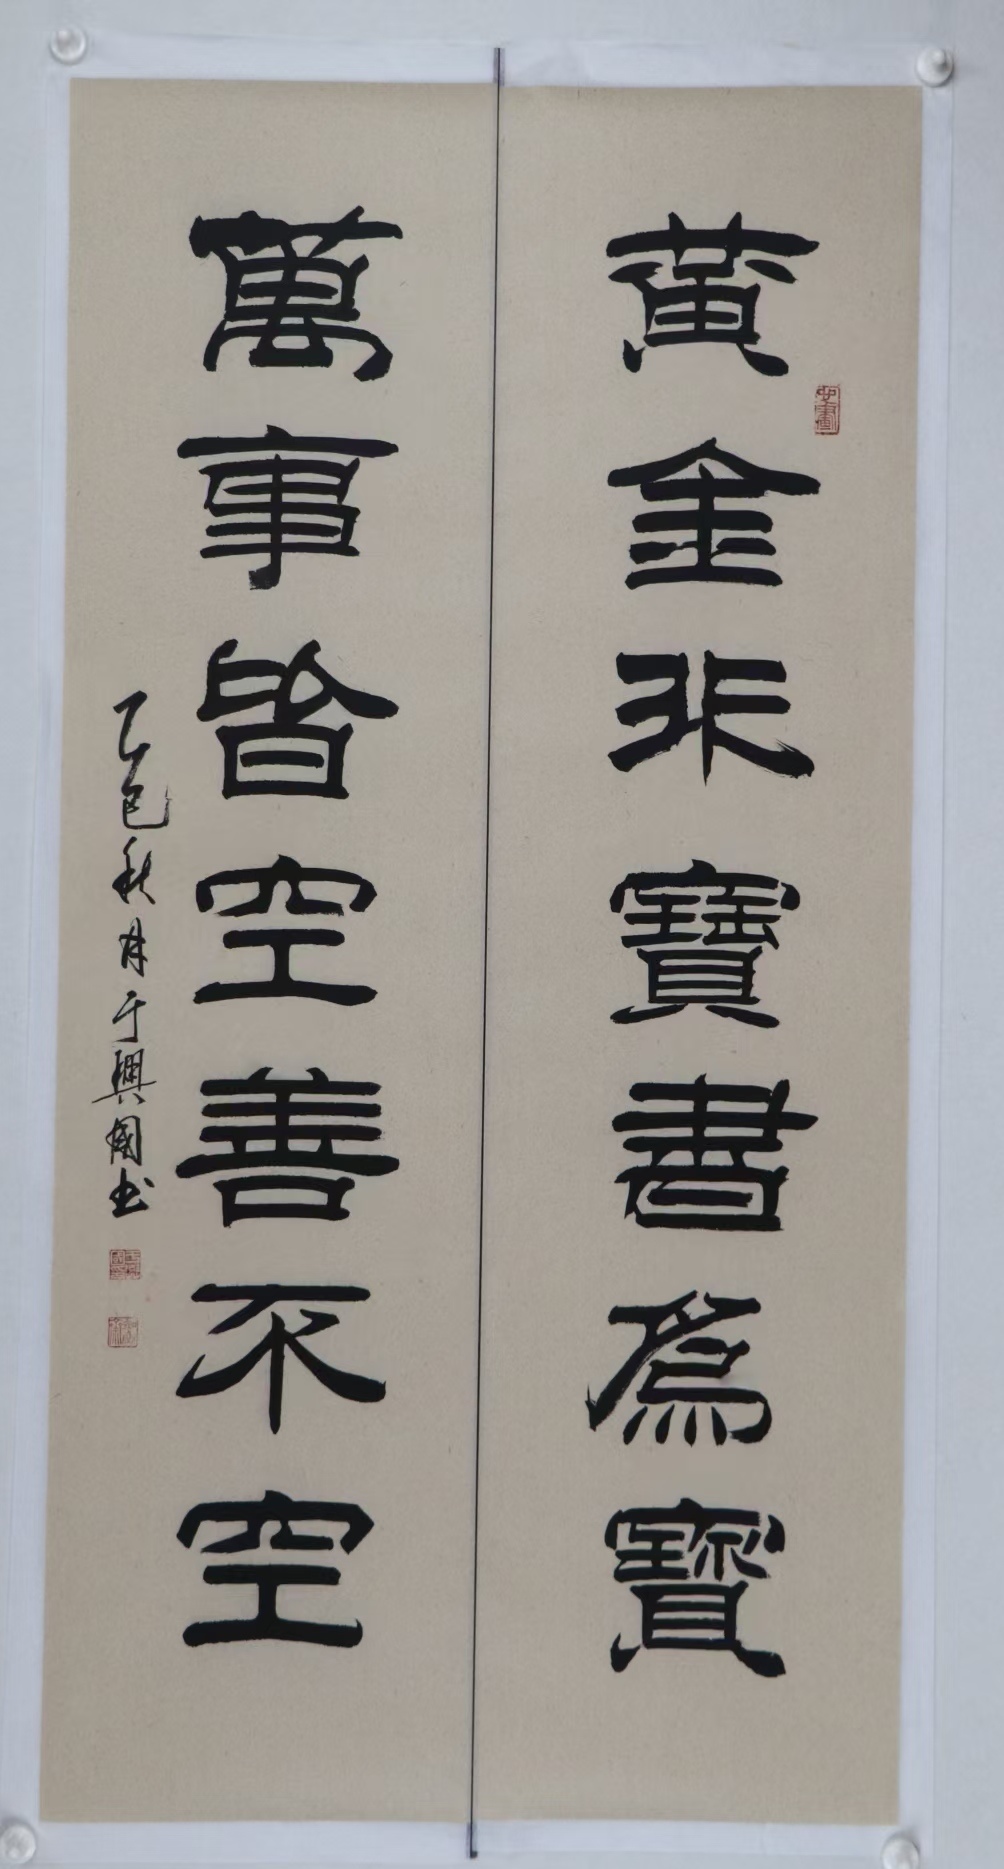 黃金非寶書為寶
萬事皆空善不空
乙巳秋月于興國书